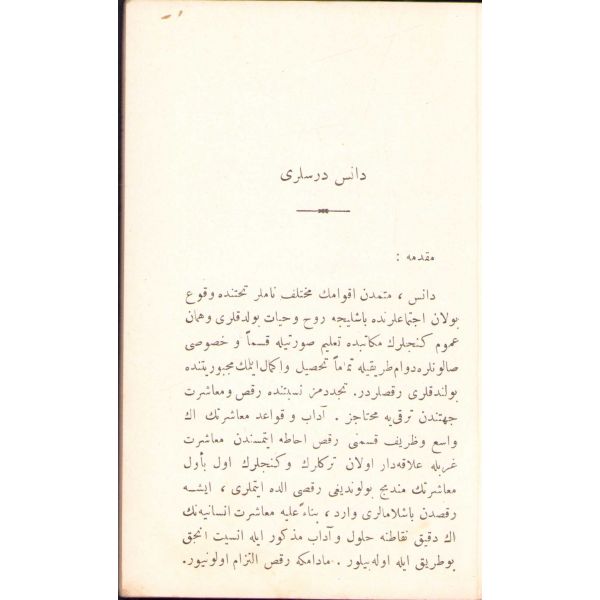 دانس درسلری
مقدمه :
دانس ، متمدن اقوامك مختلف ناملر تحتنده وقوع
بولان اجتماعلرنده باشليجه روح وحيات بولدقلری وهمان
عموم كنجلرك مكاتبده تعليم صورتيله قسماً و خصوصی
صالونلره دوام طريقيله تماماً تحصيل واكمال ايتمك مجبوريتنده
بولندقلری رقصلردر. تجددمز نسبتنده رقص ومعاشرت
جهتندن ترقی يه محتاجز . آداب و قواعد معاشرتك اك
واسع وظريف قسمنی رقص احاطه ايتمسندن معاشرت
غربله علاقه‌دار اولان تركلرك وكنجلرك اول بأول
معاشرتك مندمج بولونديغی رقصی الده ايتملری ، ايشــه
رقصدن باشلامالری وارد ، بناءً عليه معاشرت انسانيه‌نك
اك دقيق نقاطنه حلول وآداب مذكور ايله انسيت انجق
بوطريق ايله اوله بيلور . مادامكه رقص التزام اولونيور.